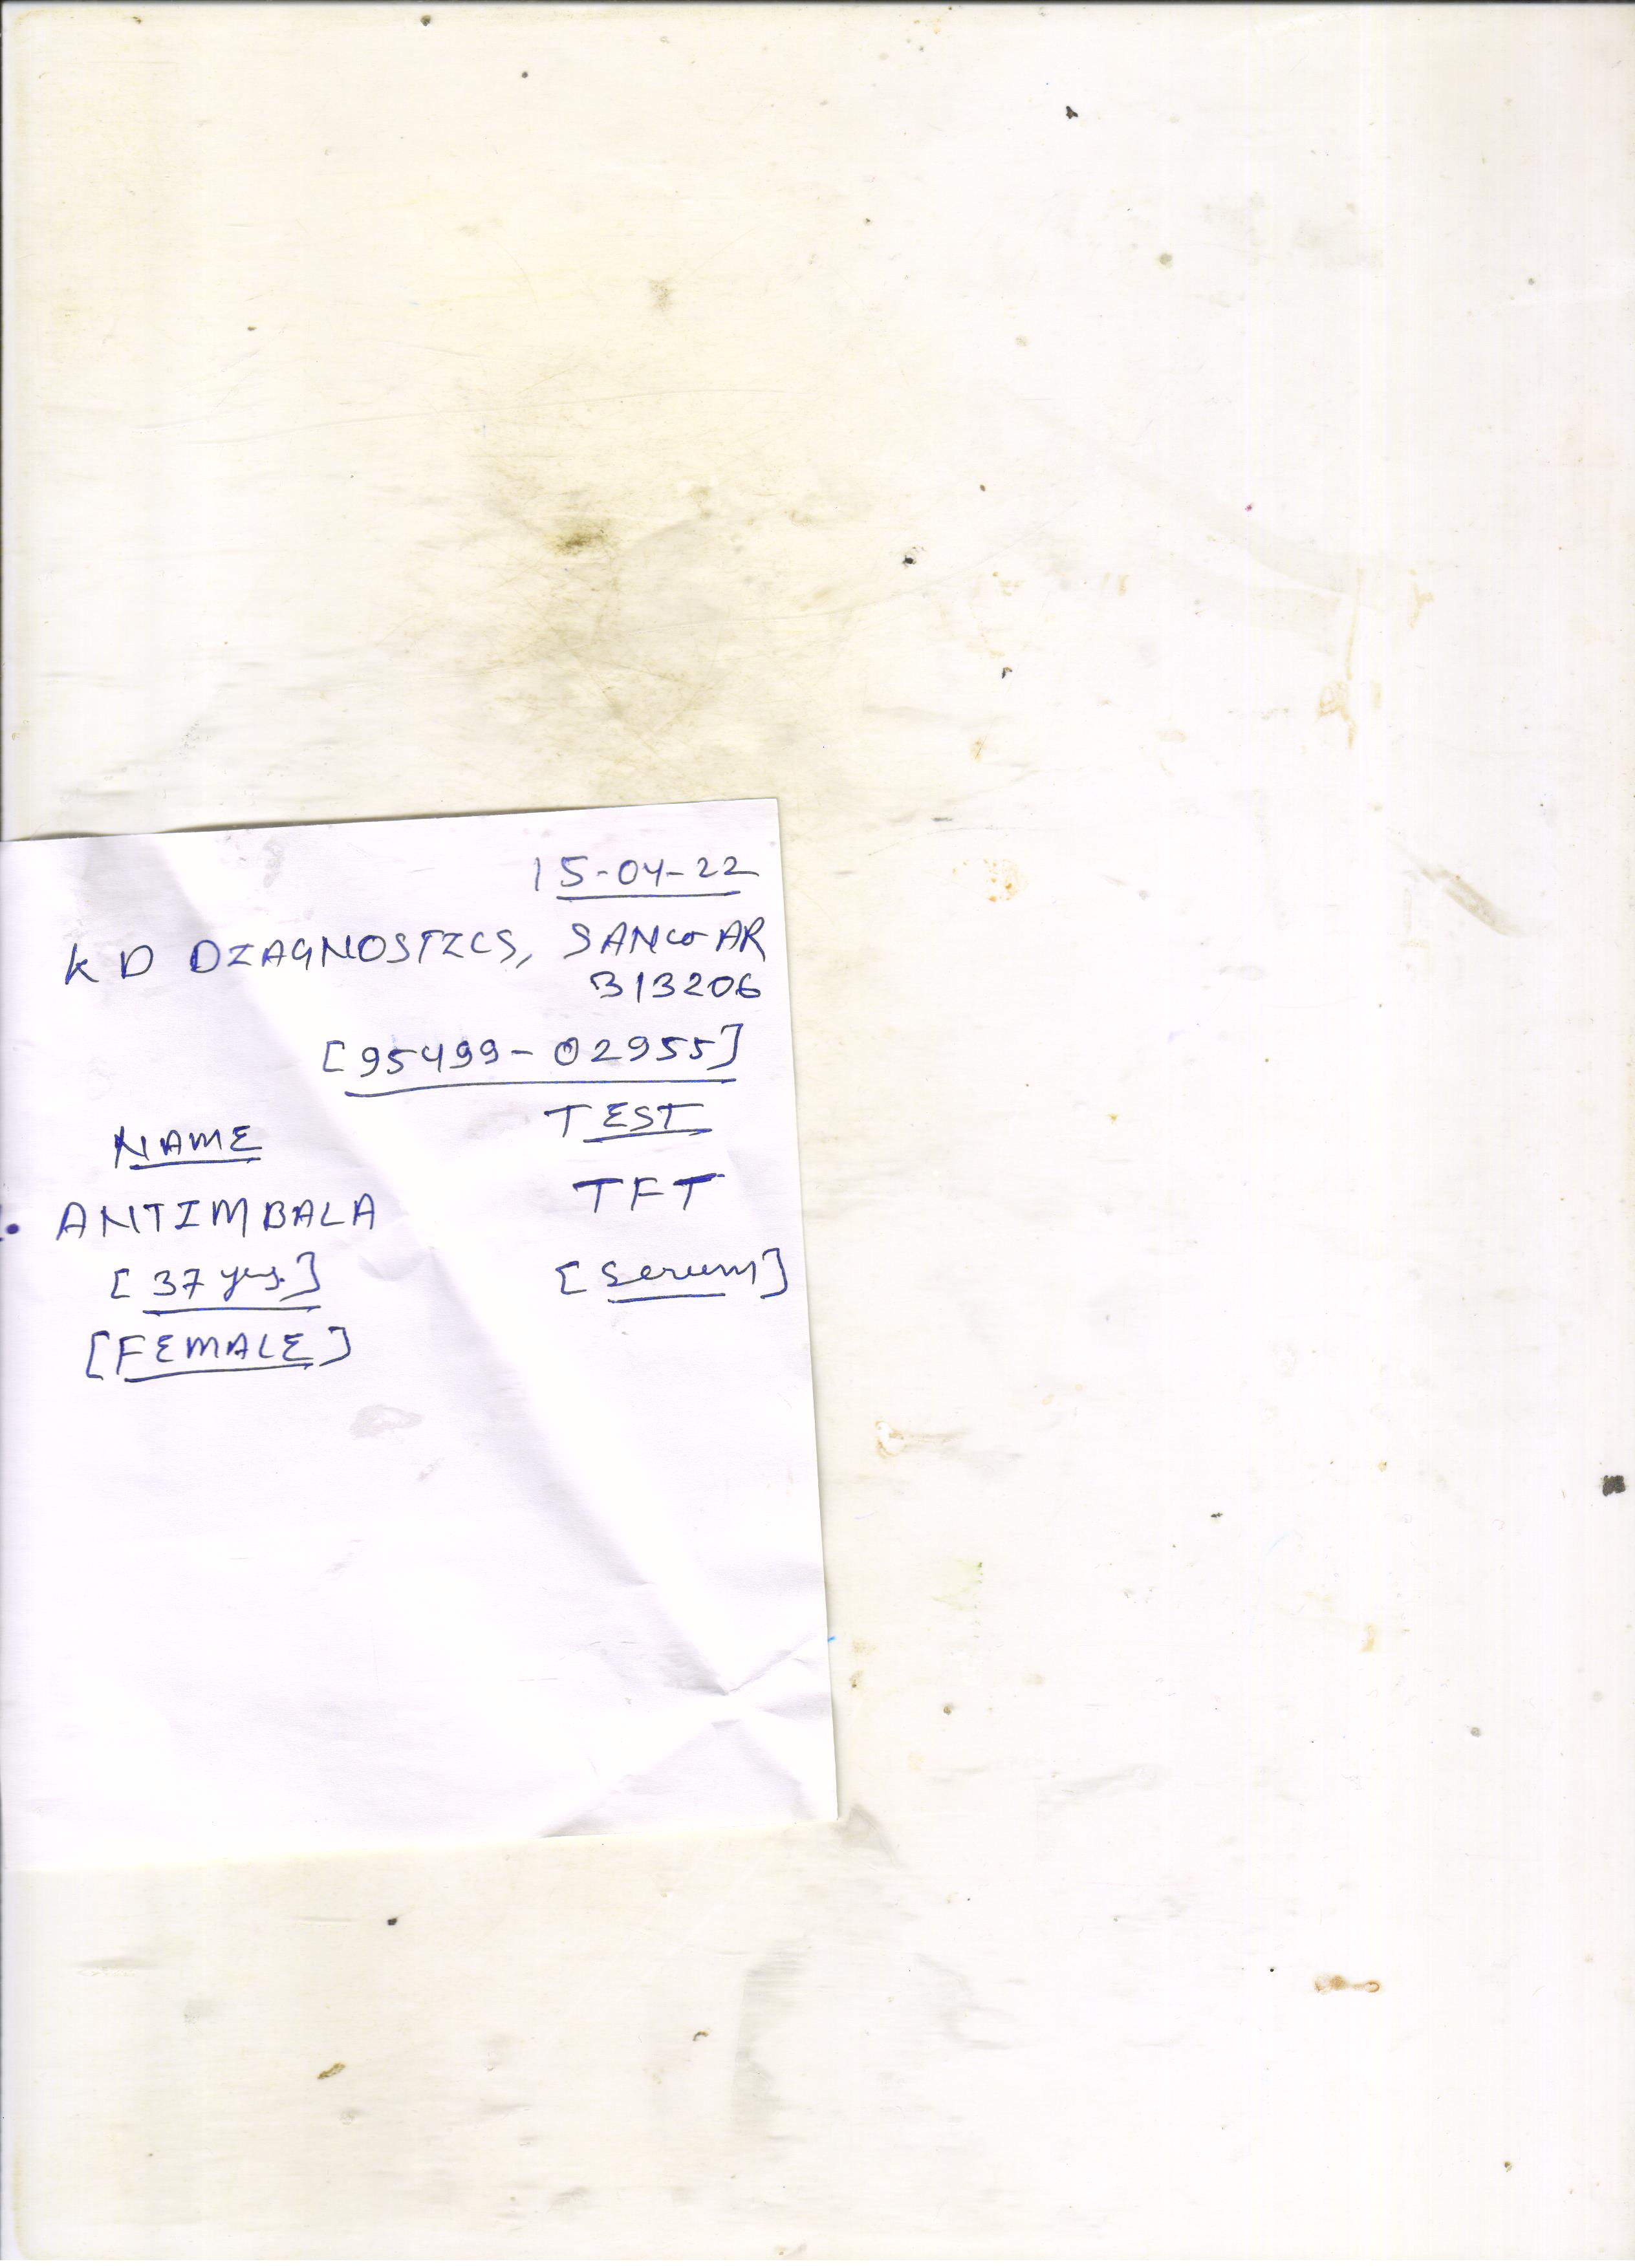 15-04-22
KD DIAGNOSTICS, SANGAR
313206
[95499-02955]
NAME TEST
. ANTIMBALA TFT
[37 yrs.] [Serum]
[FEMALE]